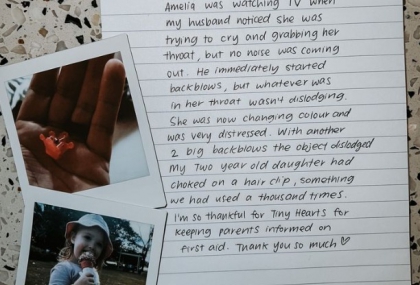 Amelia was watching TV when
my husband noticed she was
trying to cry and grabbing her
throat, but no noise was coming
out. He immediately started
backblows, but whatever was
in her throat wasn't dislodging.
She was now changing colour and
was very distressed. With another
2 big backblows the object dislodged
My Two year old daughter had
choked on a hair clip, something
we had used a thousand times.
I'm so thankful for Tiny Hearts for
keeping parents informed on
first aid. Thank you so much ♡